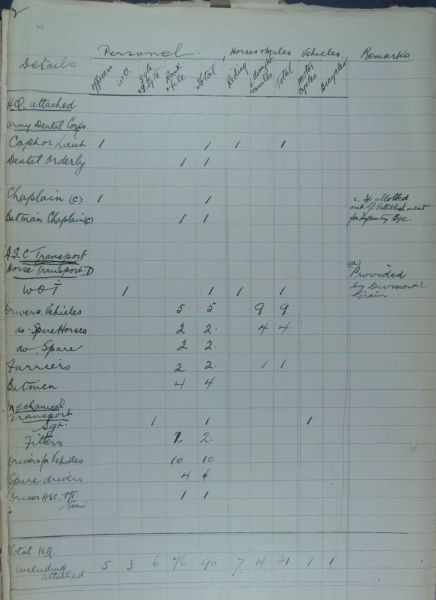 Personel. Horses & Mules Vehicles. Remarks
Details Officers W.O. Sgts Rank & File Total Riding Total Motor Cycles Bicycles
H.Q. attached
Army Dental Corps
Capt or Lieut 1 1 1 1
Dental Orderly 1 1
Chaplain (c) 1 1 c. allotted
out of Establishment
Batman Chaplain (c) 1 1 for Infantry Bgde
A.S.C. Transport
Horse Transport. D (d) Provided
W.O.I 1 1 1 1 by Divisional
Train
Drivers, Vehicles 5 5 9 9
do - Spare Horses 2 2. 4 4
do. Spare 2 2.
Farriers 2 2. 1 1
Batmen 4 4
Mechanical
Transport
Sgt. 1 1 1
Fitters 2 2.
Drivers for Vehicles 10 10
Spare drivers 4 4
Driver A.S.C. 1 1
Total H.Q.
including
attached 5 3 6 76 90 7 14 21 1 1